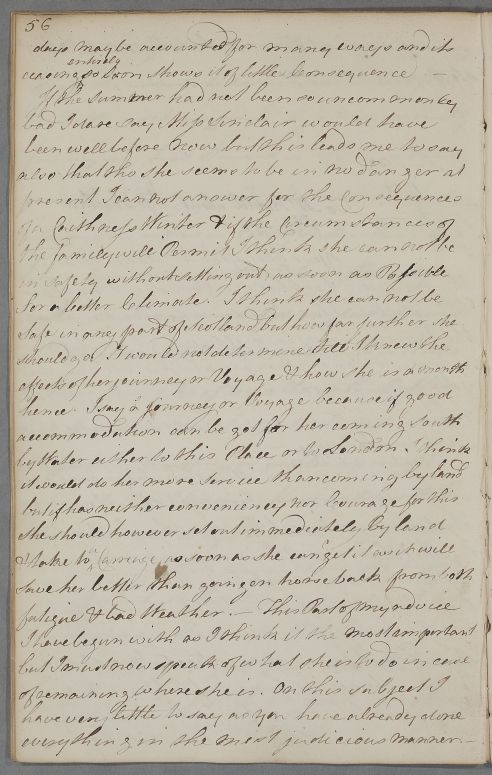 56
days may be accounted for many ways and its
entirely
ceasing so soon shows it of little Consequence —
If the summer had not been so uncommonley
bad I dare say Miss Sinclair would have
been well before now but this leads me to say
also that tho she seems to be in no danger at
present I cannot answer for the Consequences
of a Caithness Winter & if the Circumstances of
the family will Permit I think she can not be
in safety without setting out as soon as Possible
for a better Climate. I think she can not be
safe in any part of Scotland but how far further she
should go I would not determine till I knew the
effects of her journey or Voyage & how she is a month
hence. I say a Journey or Voyage because if good
accommodation can be got for her coming South
by Water either to this Place or to London I think
it would do her more service than coming by land
but if has neither conveniency nor Courage for this
she should however set out immediately by land
& take to a Carriage as soon as she can get it as it will
save her better than going on horse back from both
fatigue & bad Weather. — This Part of my advice
I have begun with as I think it the most important
but I must now speak of what she is to do in case
of remaining where she is. On this subject I
have very little to say as you have already done
every thing in the most judicious manner. —